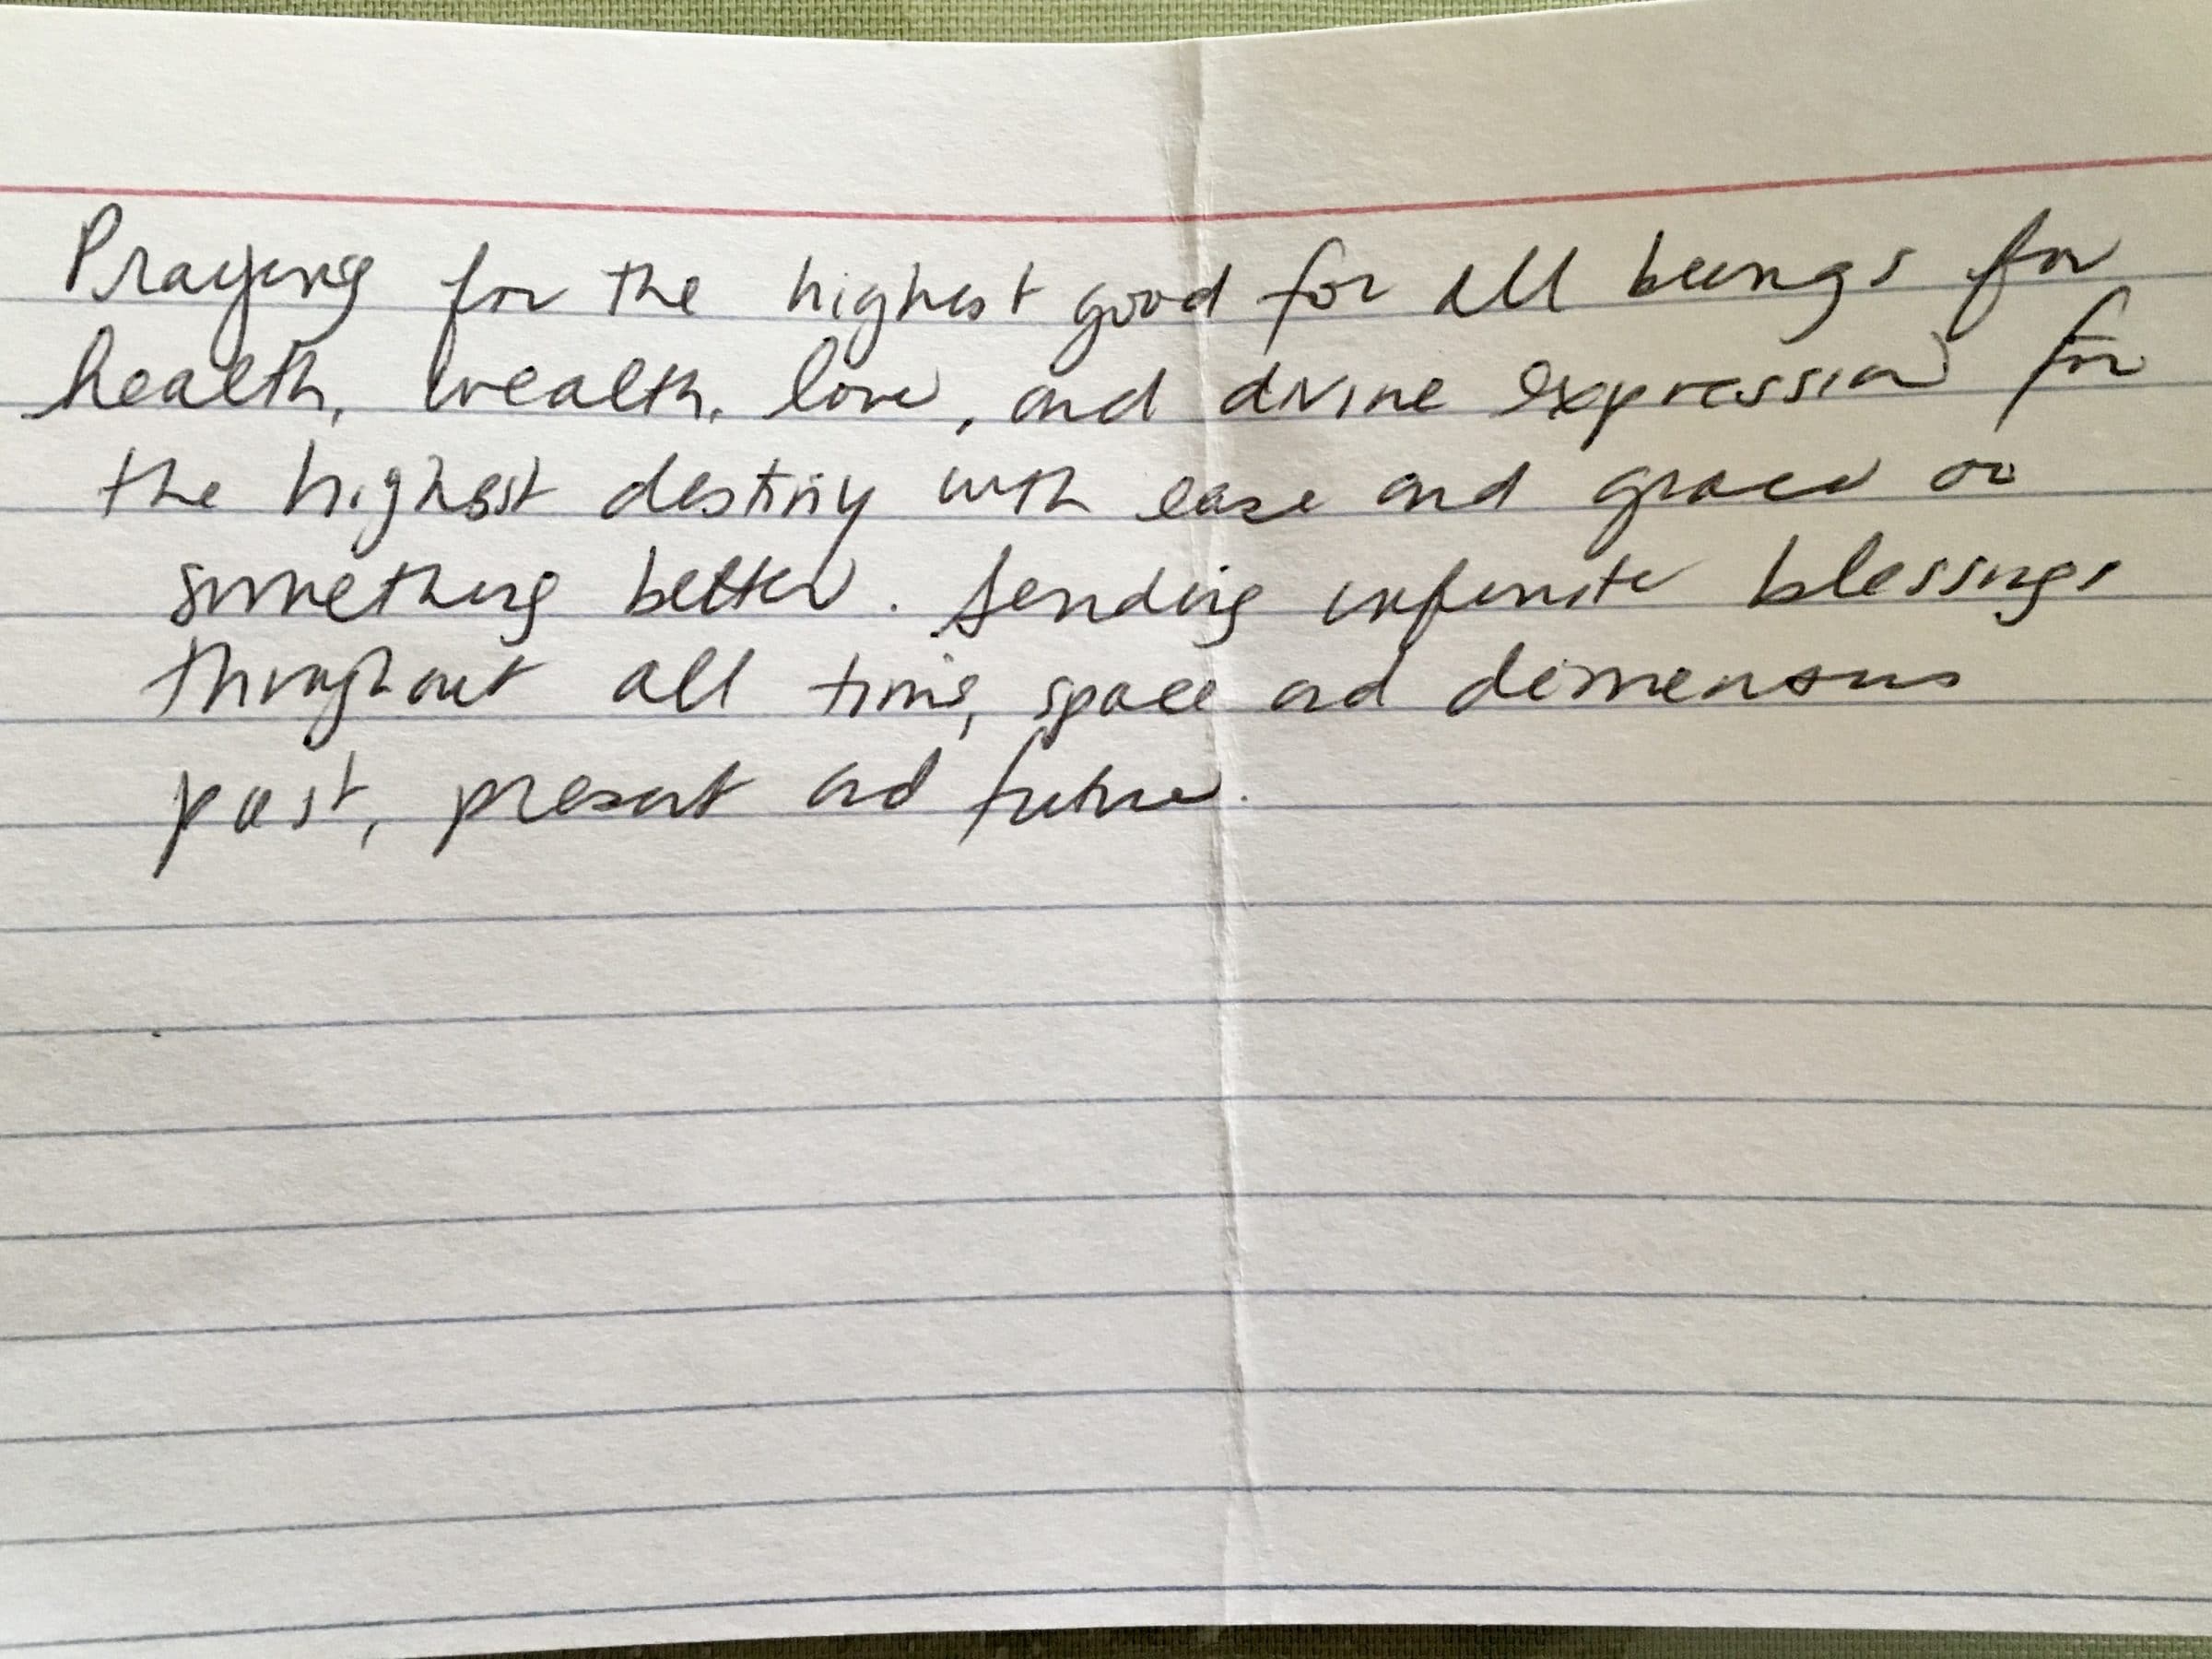 Praying for the highest good for all beings for
health, wealth, love, and divine expression for
the highest destiny with ease and grace or
something better. Sending infinite blessings
throughout all time, space and dimensions
past, present and future.